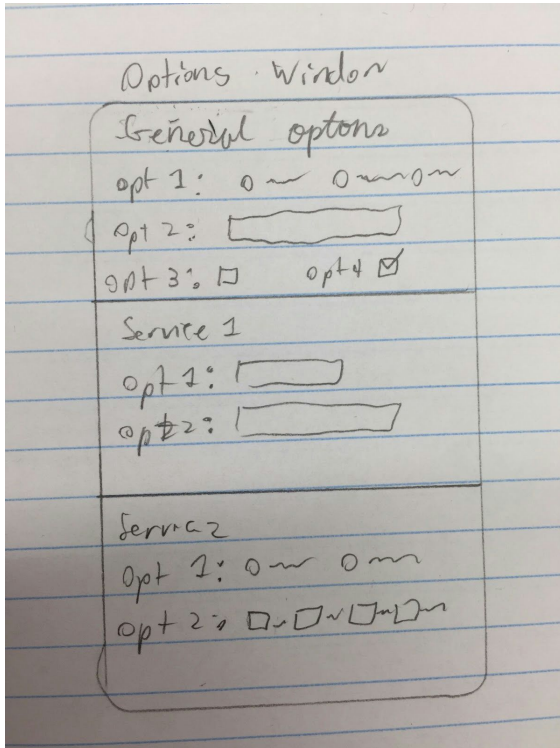 Options Window
General optons
opt 1:
opt 2:
opt 3: opt 4
Service 1
opt 1:
opt 2:
Servic 2
Opt 1:
opt 2: